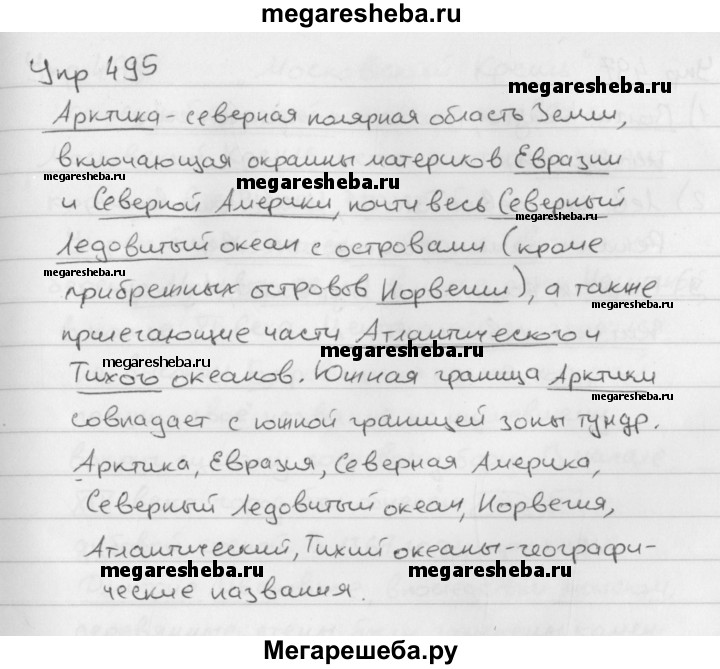 megaresheba.ru
Упр 495
Арктика - северная полярная область Земли,
megaresheba.ru
включающая окраины материков Евразии
megaresheba.ru megaresheba.ru megaresheba.ru
и Северной Америки, почти весь Северный
megaresheba.ru
Ледовитый океан с островами (кроме
megaresheba.ru
прибрежных островов Норвегии), а также
megaresheba.ru
прилегающие части Атлантического и
megaresheba.ru megaresheba.ru
Тихого океанов. Южная граница Арктики
megaresheba.ru
совпадает с южной границей зоны тундр.
Арктика, Евразия, Северная Америка,
Северный Ледовитый океан, Норвегия,
Атлантический, Тихий океаны - географи-
megaresheba.ru megaresheba.ru
ческие названия.
Мегарешеба.ру